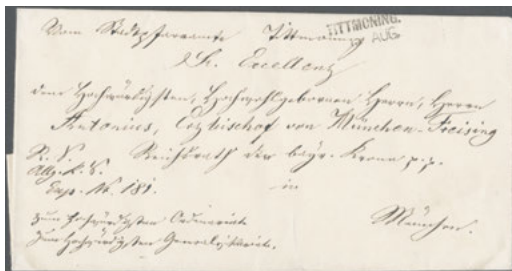 Vom Stadtpfarramte Tittmoning
TITTMONING.
AUG.
Sr. Excellenz
dem Hochwürdigsten, Hochwohlgebornen Herrn, Herrn
Antonius, Erzbischof von München-Freising
R. S. Reichsrath der bayr. Krone p. p.
Exp. No. 181. in
zum Hochwürdigsten Ordinariate München.
zum Hochwürdigsten Generalvikariate.